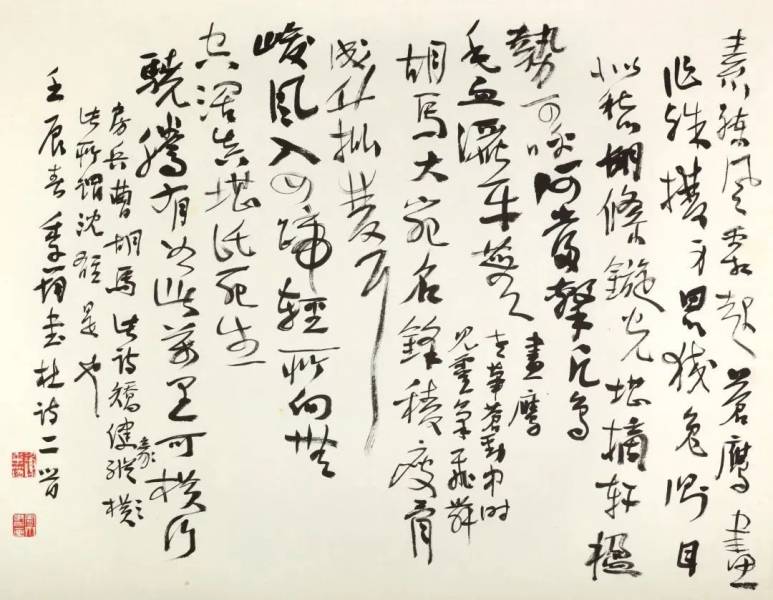 素練風霜起蒼鷹畫
作殊㩳身思狡兔側目
似愁胡絛鏇光堪摘軒楹
勢可呼何當擊凡鳥
毛血灑平蕪
畫鷹
老筆蒼勁中時
見靈氣飛舞
胡馬大宛名鋒稜瘦骨
成竹批雙耳
峻風入四蹄輕所向無
空闊真堪託死生
驍騰有如此萬里可橫行
房兵曹胡馬 此詩矯健縱橫
此所謂沈雄是也
壬辰春書杜詩二首